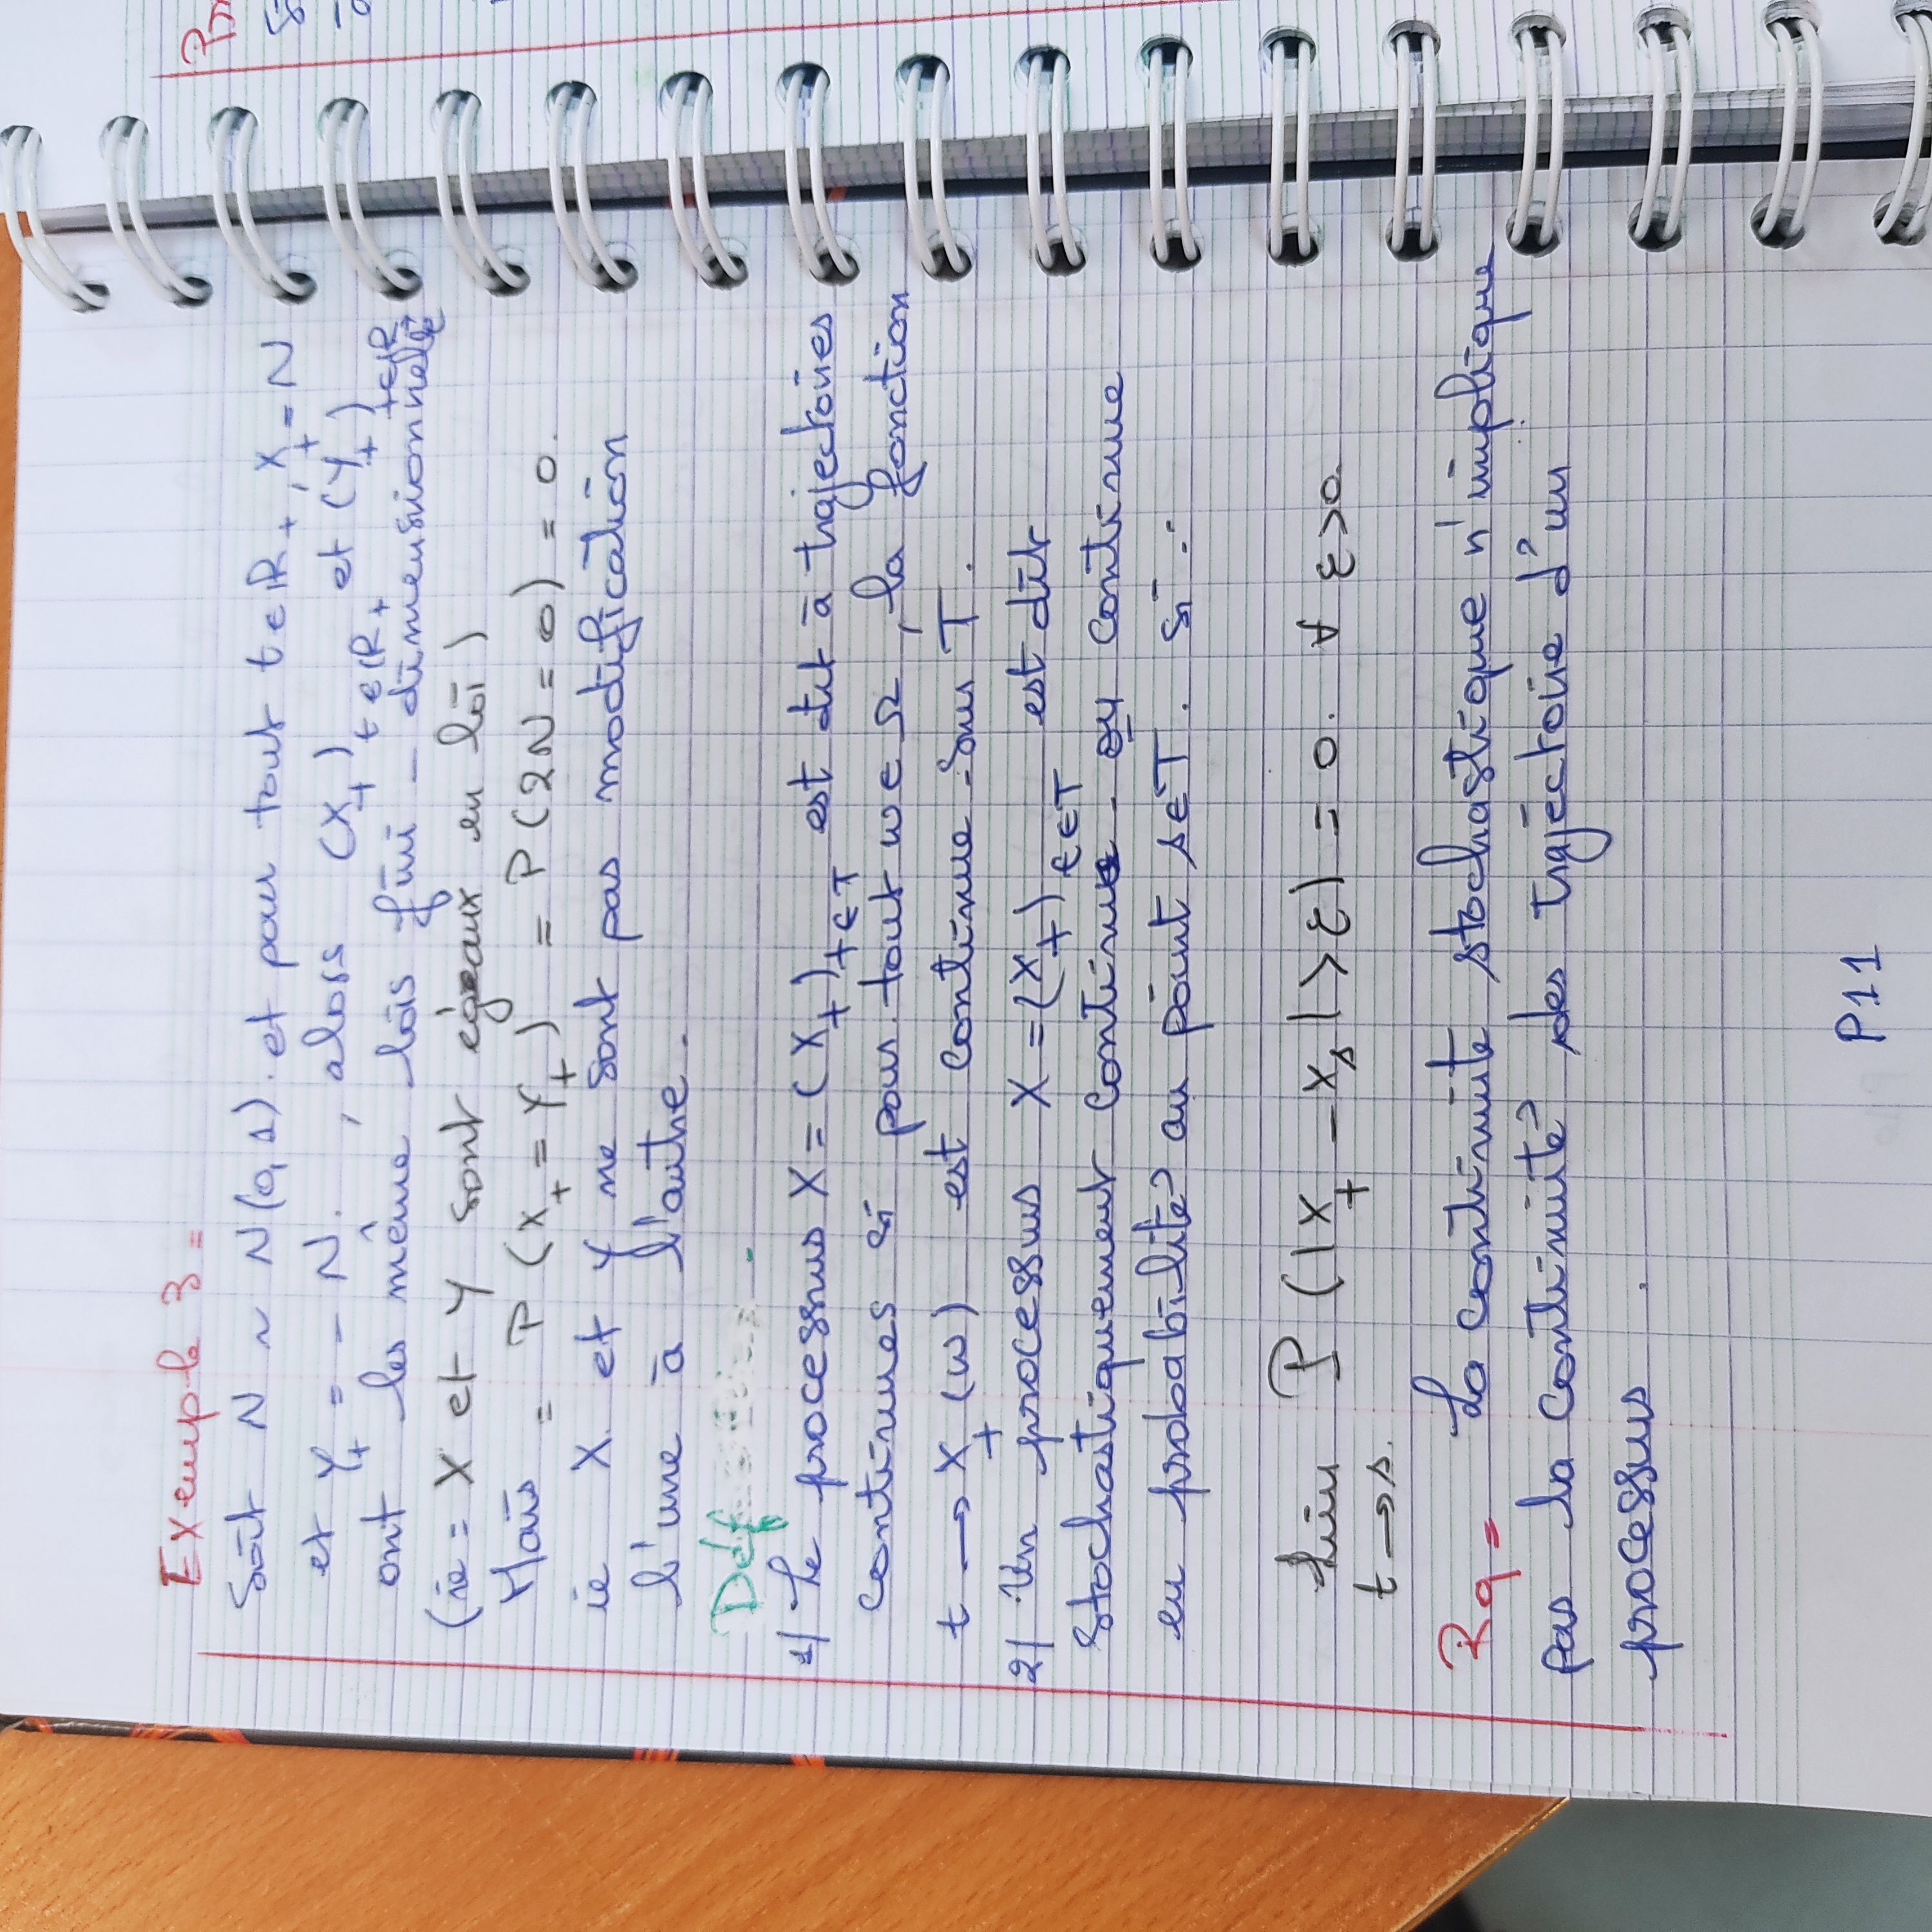 Exemple 3 =
Soit N ~ N(0,1). et pour tout t ∈ IR+, Xt = N
et Yt = - N. , alors (Xt) t ∈ IR+ et (Yt) t ∈ IR
ont les même lois fini - dimensionnelle
(ie = X et Y sont egeaux en loi)
Mais = P (Xt = Yt) = P(2N = 0) = 0.
ie X. et Y ne sont pas modification
l'une à l'autre.
Déf .
1) Le processus X = (Xt) t ∈ T est dit à trajectoires
continues si pour tout w ∈ Ω, la fonction
t → Xt (w) est continue sur T.
2) Un processus X = (Xt) t ∈ T est dit
stochastiquement continue ou continue
en probabilité au point s ∈ T. si :
lim P (|Xt - Xs| > ε) = 0. ∀ ε > 0.
t → s.
Rq = La continuite stochastique n'implique
pas la continuité des trajéctoire d'un
processus .
P11
Pr
S